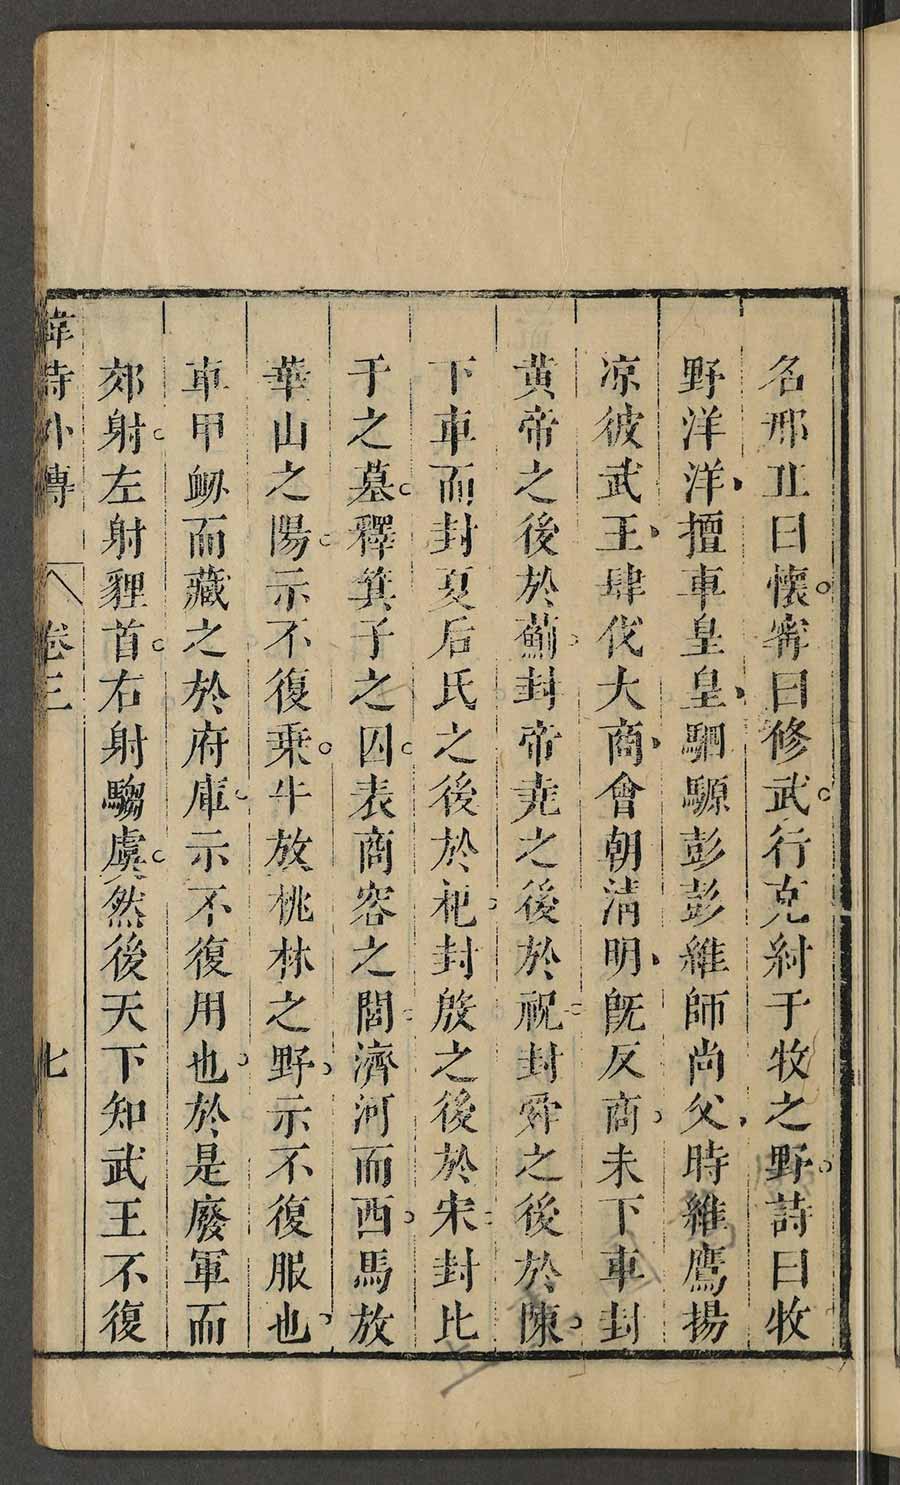 名邢丘曰懷甯曰修武行克紂于牧之野詩曰牧
野洋洋檀車皇皇駟騵彭彭維師尚父時維鷹揚
凉彼武王肆伐大商會朝淸明旣反商未下車封
黃帝之後於薊封帝堯之後於祝封舜之後於陳
下車而封夏后氏之後於杞封殷之後於宋封比
干之墓釋箕子之囚表商容之閭濟河而西馬放
華山之陽示不復乗牛放桃林之野示不復服也
車甲衅而藏之於府庫示不復用也於是廢軍而
郊射左射貍首右射騶虞然後天下知武王不復
韓詩外傳 卷三 七